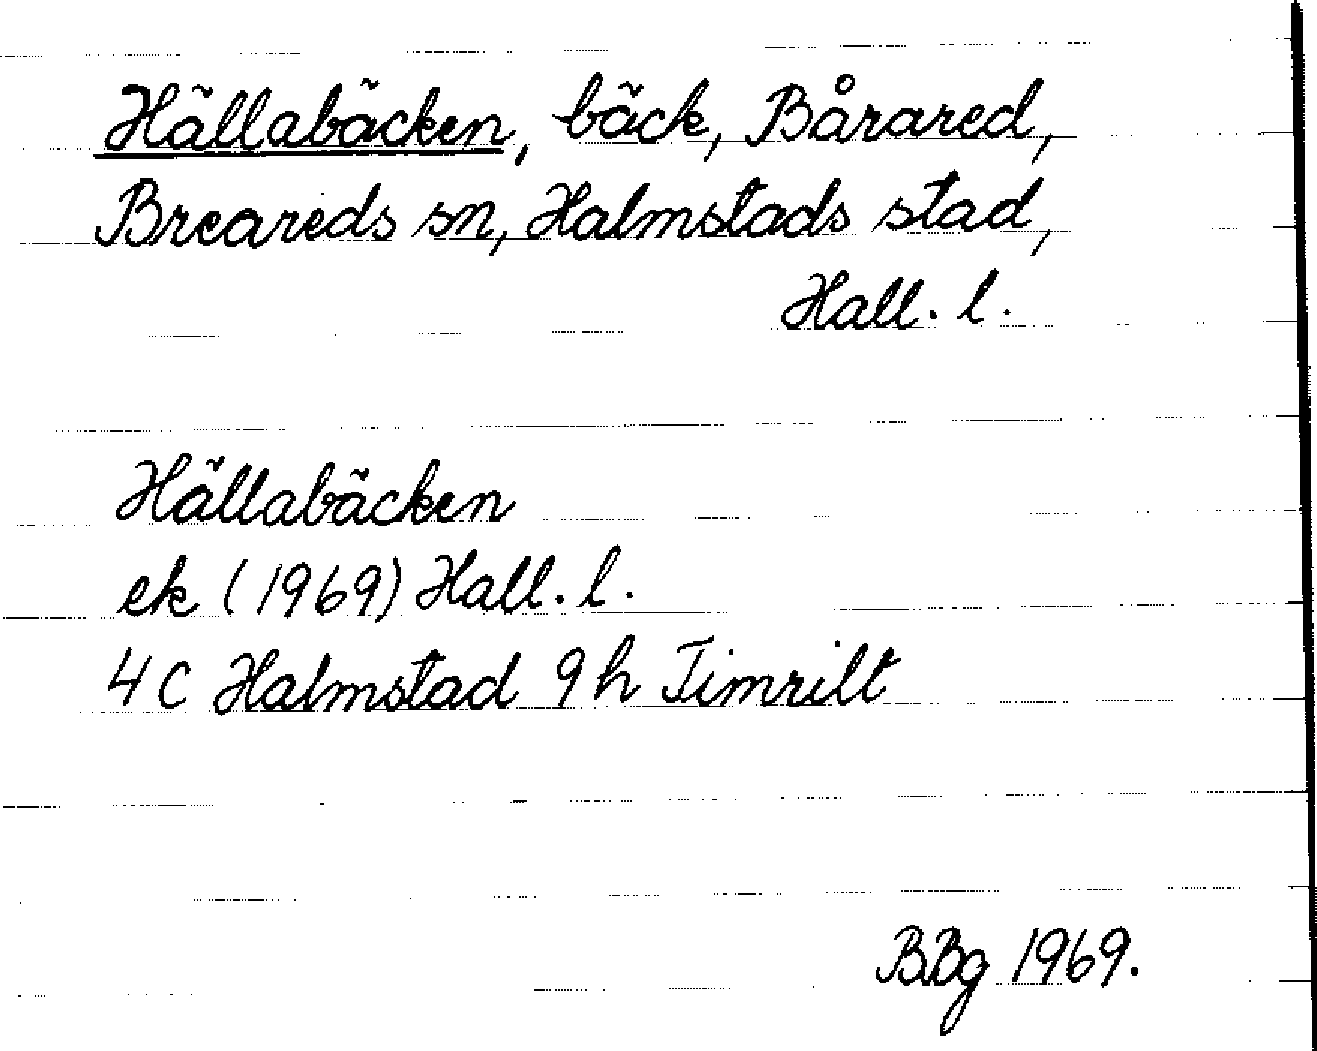 Hällabäcken, bäck, Bårared,
Breareds sn, Halmstads stad,
Hall. l.
Hällabäcken
ek (1969) Hall. l.
4 C Halmstad 9 h Timrilt
BBg 1969.